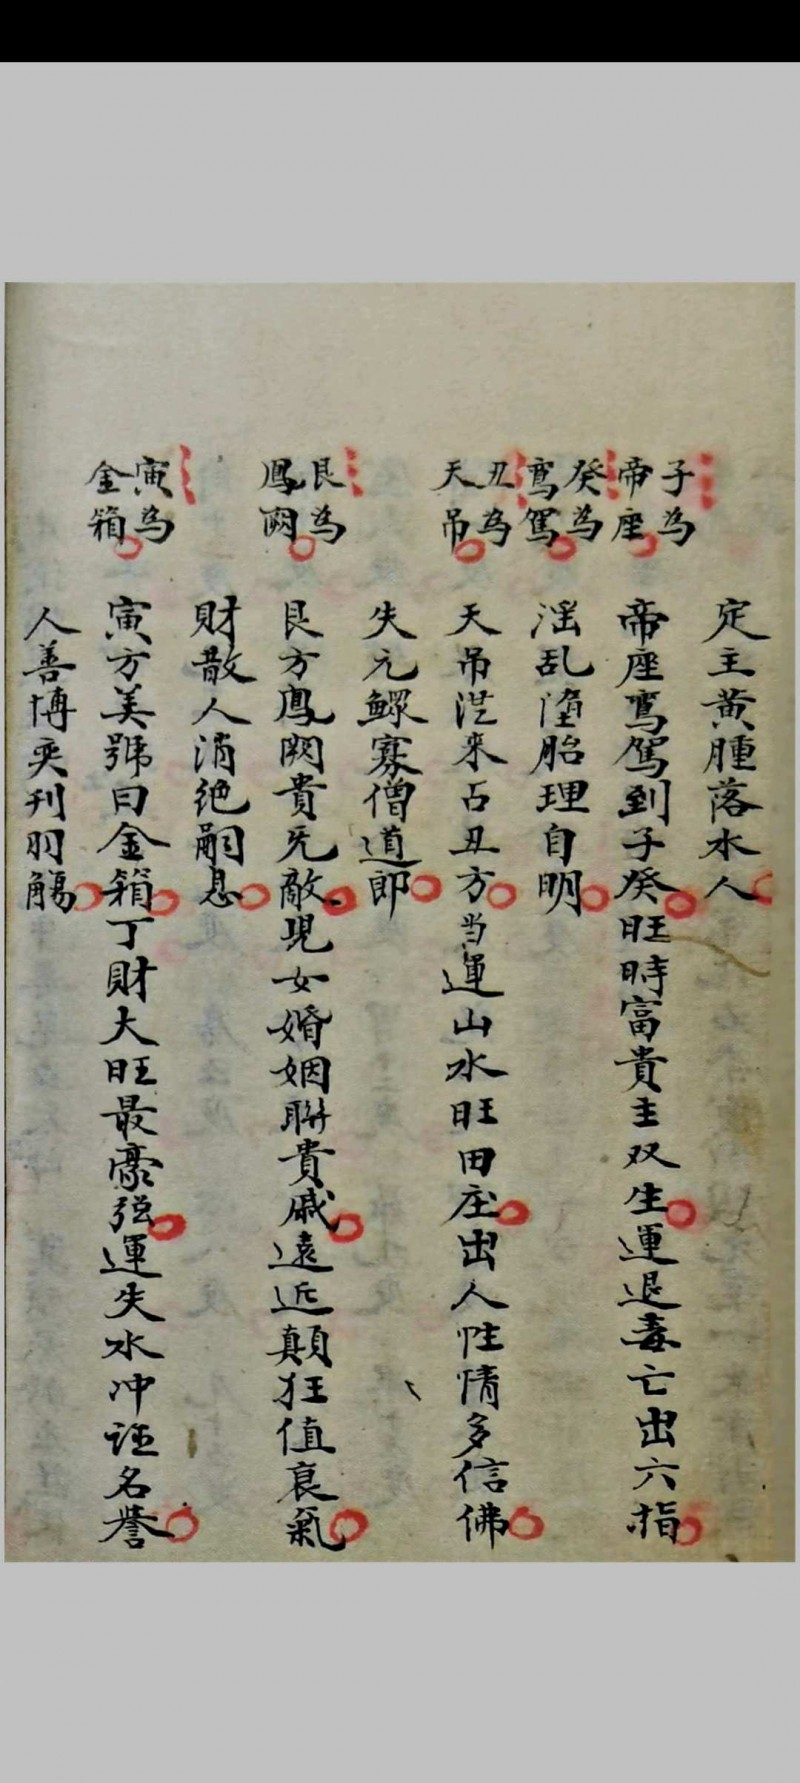 子為
帝座
癸為
鸞駕
丑為
天吊
艮為
鳳閣
寅為
金箱
定主黄腫落水人
帝座鸞駕到子癸旺時富貴主双生運退毒亡出六指
淫乱墮胎理自明
天吊涖来占丑方当運山水旺田庄出人性情多信佛
失元鰥寡僧道郎
艮方鳳閣貴无敵児女婚姻聯貴戚遠近顛狂值衰氣
財散人消绝嗣息
寅方美號曰金箱丁財大旺最豪强運失水冲誣名誉
人善博奕刑羽觴